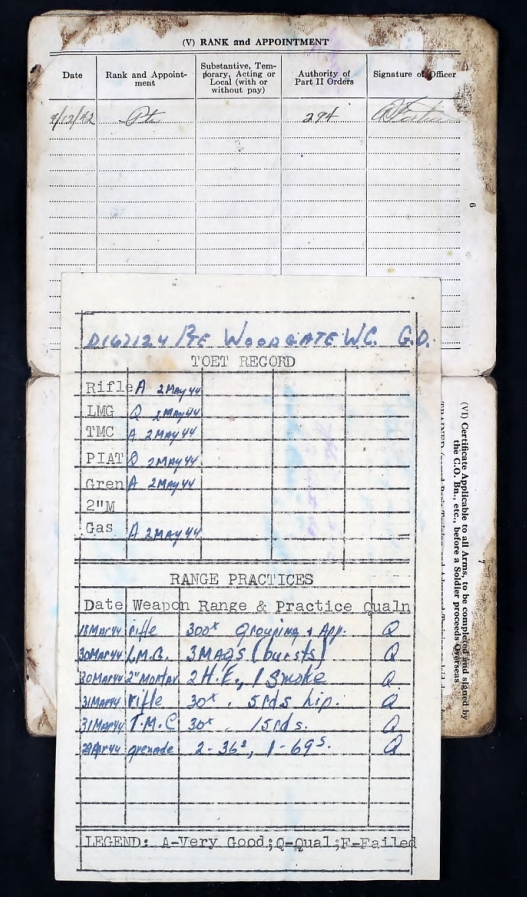 (V) RANK and APPOINTMENT
Date Rank and Appoint-ment Substantive, Tem-porary, Acting or Local (with or without pay) Authority of Part II Orders Signature of Officer
9/12/42 Pte 294
6
D167124 PTE WOODGATE W.C. G.D.
TOET RECORD
Rifle A 2 May 44
LMG Q 2 May 44
TMC A 2 May 44
PIAT Q 2 May 44
Gren A 2 May 44
2"M
Gas A 2 May 44
RANGE PRACTICES
Date Weapon Range & Practice Qualn
18 Mar 44 rifle 300x Grouping & App. Q
30 Mar 44 L.M.G. 3 MAGS (bursts) Q
30 Mar 44 2" Mortar 2 H.E., 1 Smoke Q
31 Mar 44 rifle 30x . 5 rds hip. Q
31 Mar 44 T.M.C 30x . 15 rds. Q
29 Apr 44 grenade 2-36s, 1-69s. Q
LEGEND: A-Very Good;Q-Qual;F-Failed
7
(VI) Certificate Applicable to all Arms, to be completed and signed by
the C.O. Bn., etc., before a Soldier proceeds Overseas